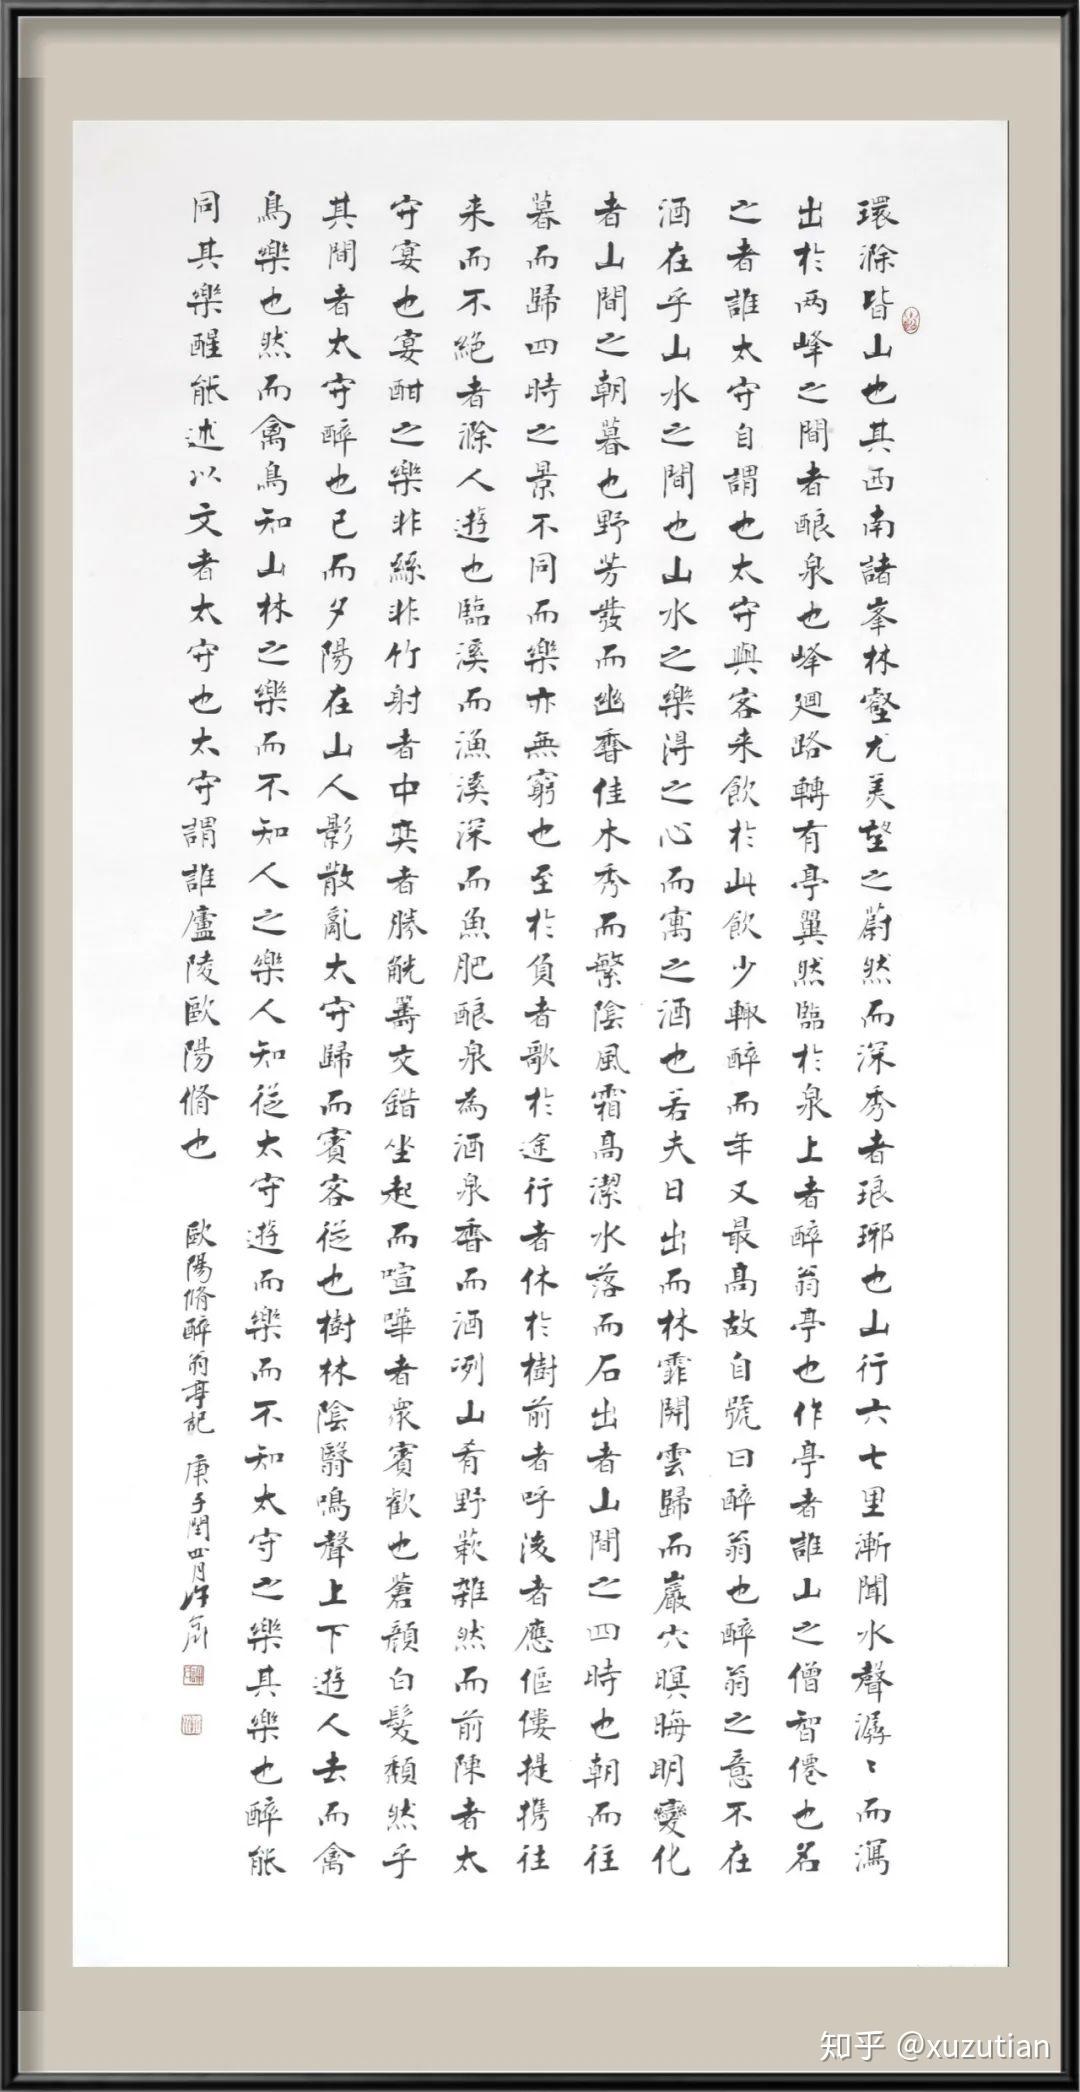 環滁皆山也其西南諸峯林壑尤美望之蔚然而深秀者琅琊也山行六七里漸聞水聲潺〻而瀉
出於两峰之間者酿泉也峰廻路轉有亭翼然臨於泉上者醉翁亭也作亭者誰山之僧智僊也名
之者誰太守自謂也太守與客来飲於此飲少輒醉而年又最高故自號曰醉翁也醉翁之意不在
酒在乎山水之間也山水之樂得之心而寓之酒也若夫日出而林霏開雲歸而巖穴暝晦明變化
者山間之朝暮也野芳發而幽香佳木秀而繁陰風霜高潔水落而石出者山間之四時也朝而往
暮而歸四時之景不同而樂亦無窮也至於負者歌於途行者休於樹前者呼後者應傴僂提携往
来而不絶者滁人遊也臨溪而漁溪深而魚肥酿泉為酒泉香而酒冽山肴野蔌雜然而前陳者太
守宴也宴酣之樂非絲非竹射者中奕者勝觥籌交錯坐起而喧嘩者衆賓歡也蒼顏白髮頹然乎
其間者太守醉也已而夕陽在山人影散亂太守歸而賓客從也樹林陰翳鳴聲上下遊人去而禽
鳥樂也然而禽鳥知山林之樂而不知人之樂人知從太守遊而樂而不知太守之樂其樂也醉能
同其樂醒能述以文者太守也太守謂誰廬陵歐陽脩也
歐陽脩醉翁亭記 庚子閏四月
知乎 @xuzutian